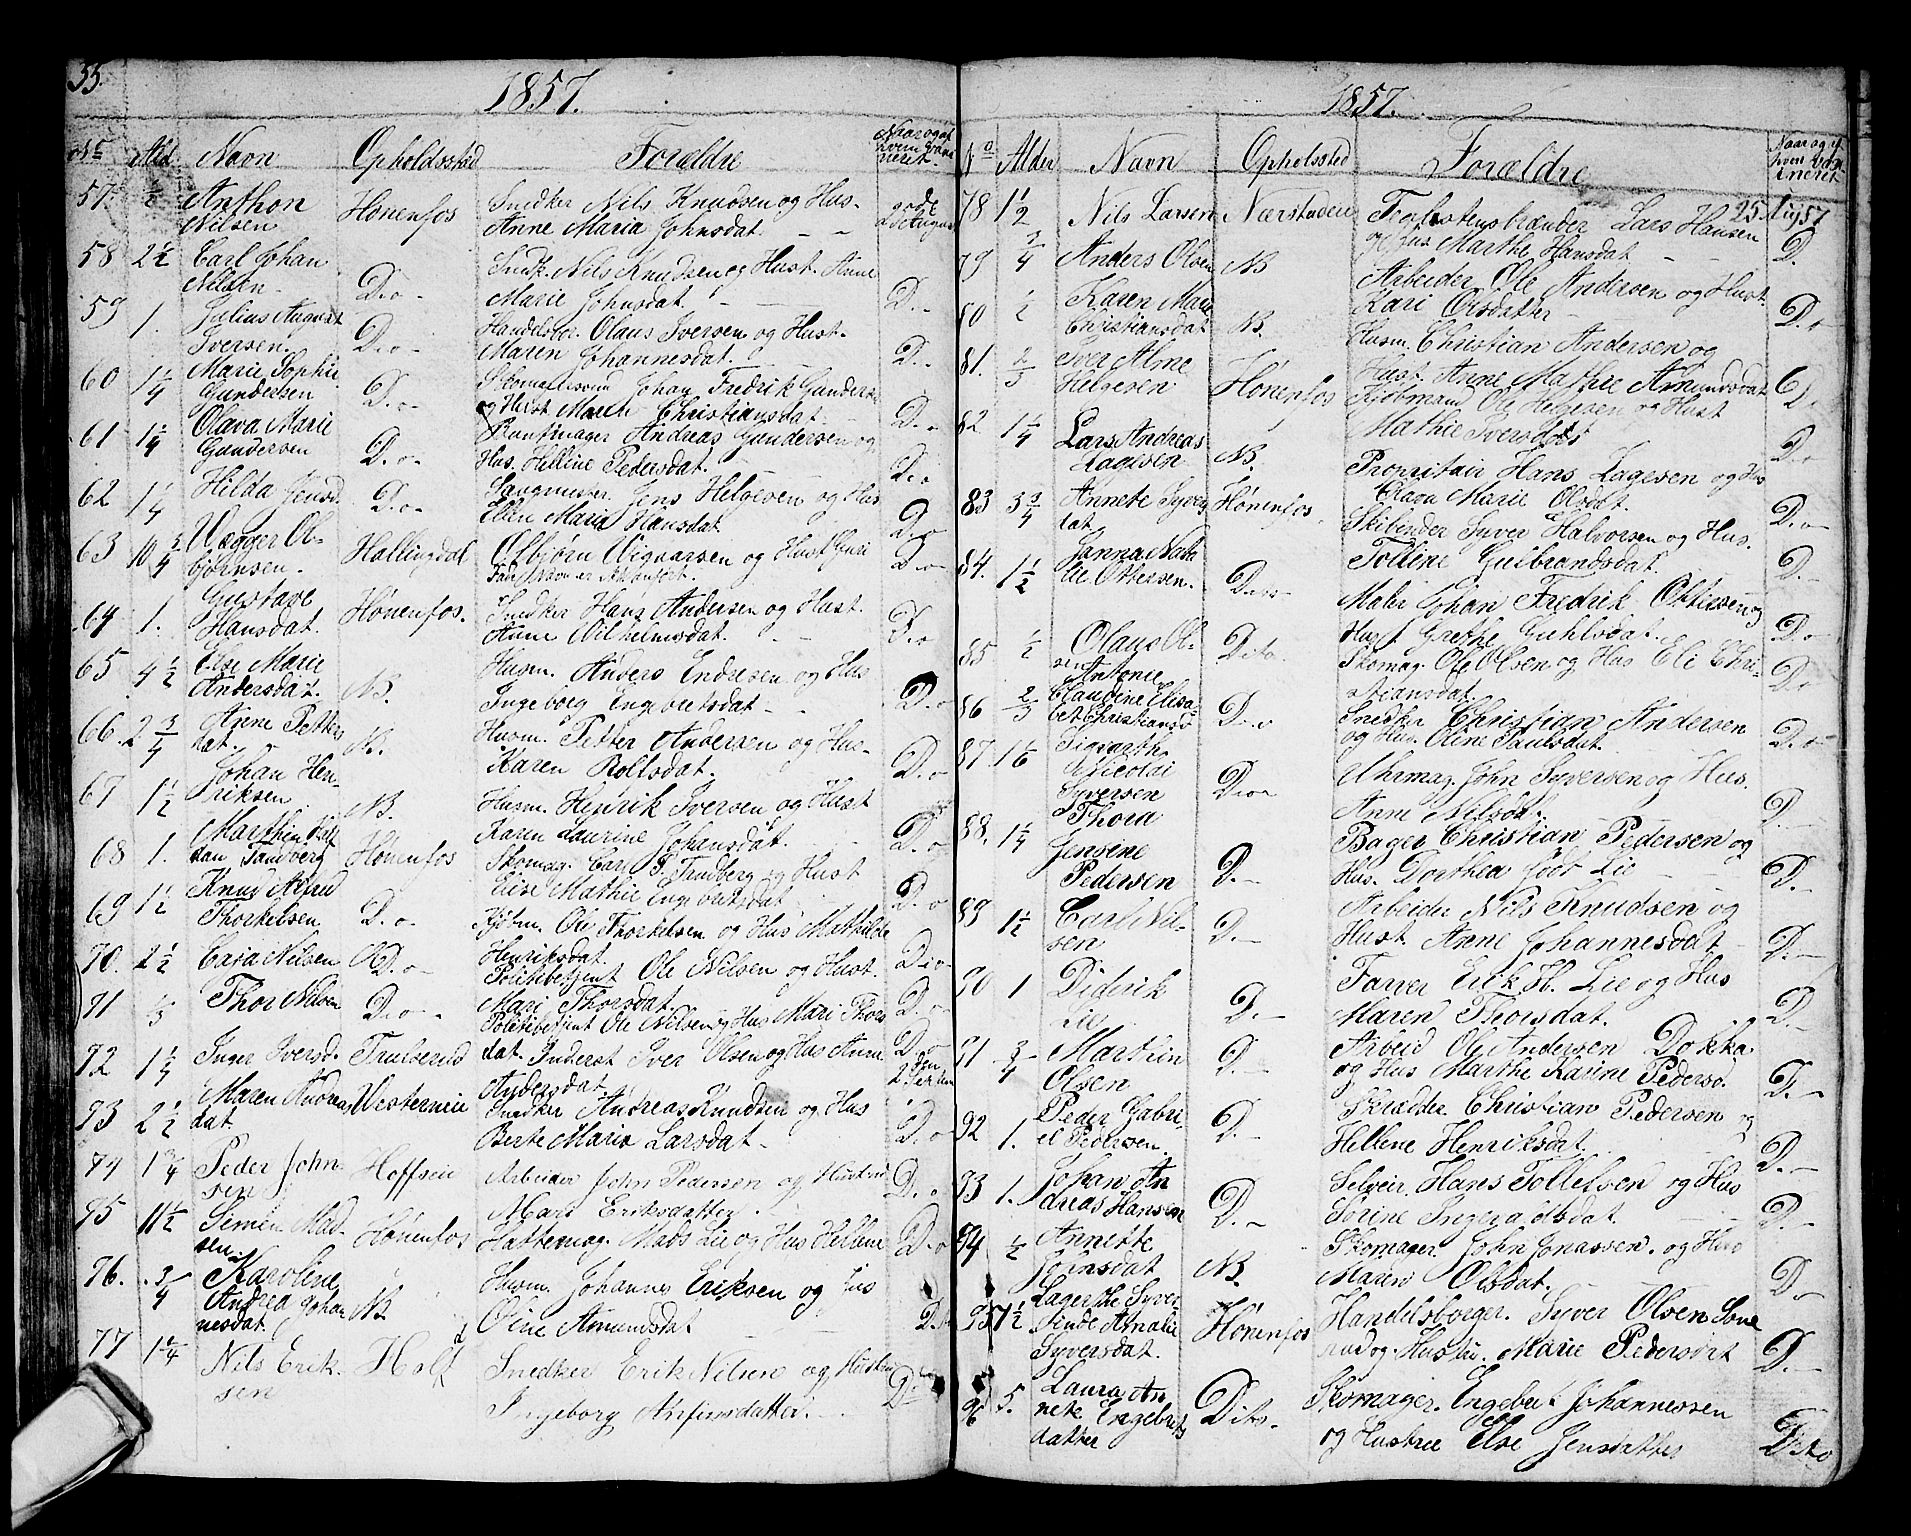 33.
1857.
No Ald. Navn Opholdsstad Forældre Naar og af hvem vaccineret.
57. ½ Anthon Nilsen Hönenfos Snedker Nils Knudsen og Hus- Anne Maria Johnsdat.
58 2½ Carl Johan Nilsen D.o Snedk. Nils Knudsen og Hust. Anne Marie Johnsdat. D.
59 1. Julius August Iversen. D.o Handelsbor. Olaus Iversen og Hust. Maren Johannesdat. D.o
60 1¼ Marie Sophie Gundersen D.o Johan Fredrik Gunders og Hust Maren Christiansdat. D.o
61 1¼ Olava Marie Gundersen D.o Buntmager Andreas Gundersen og Hus. Helline Pedersdat. D.o
62 1¼ Hilda Jensd. D.o Saugmester. Jens Helgesen og Hus Ellen Maria Hansdat. D.o
63 10¾ Hallingdal Olbjörn og Hust Guri D.o
64 1. Gustave Hansdat. Hönenfos. Snedker Hans Andersen og Hust. Anne Vilhelmsdat. D.o
65 4½ Else Marie Andersdat. NB. Husm. Anders Endresen og Hus Ingeborg Engebretsdat D.o
66. 2¾ Anne Petters dat. NB. Husm. Petter Andersen og Hus- Karen Boltsdat. D.o
67 1½ Johan Henriksen NB. Husm. Henrik Iversen og Hust Karen Laurine Johansdat. D.o
68 1. Hönenfos Skomag. Carl og Hust Elise Mathie Engebretsdat D.o
69 1½ Knud Alfred Thorkelsen D.o Ole Thorkelsen og Hus Mathilde Henriksdat. D.o
70. 2½ Caja Nilsen D.o Politibetjent Ole Nilsen og Hust. Mari Thorsdat. D.o
71 ⅓ Thor Nilsen D.o Politibetjent Ole Nilsen og Hus Mari Thorsdat. D.o
72 1¼ Inger Iversd. Trulserud Inderst Iver Olsen og Hus Anne Andersdat
73 2½ Maren Andreasdat Vesterneie Snedker Andreas Knudsen og Hus Berte Maria Larsdat D.o
74 1¾ Peder Johnsen Hoffseie Arbeider John Pedersen og Hustrue Mari Eriksdatter. D.o
75 11½ Simen Madsen. Hönenfos Hattemag. Mads Lie og Hus Hellene D.o
76. ¾ Karoline Andrea Johannesdat. NB. Husm. Johannes Eriksen og Hus Oline Amundsdat D.o
77 1¼ Nils Eriksen Holt Snedker Erik Nilsen og Hustru Ingeborg Arfinsdatter. D.o
1857.
No Alder Navn Opholssted Forældre Naar og af hvem vaccineret
78 1½ Nils Larsen Nærstaden Teglstensbrænder Lars Hansen og Hus Marthe Hansdat 25.
79 ¾ Anders Olsen NB Arbeider Ole Andersen og Hust. Kari Olsdatter D.
80 ½ Karen Marie Christiansdat NB. Husm. Christian Andersen og Hust. Anne Mathie Amundsdat D.o
81. ⅔ Iver Alme Helgesen Hönenfos Kiöbmand Ole Helgesen og Hust Mathie Iversdat
82 1¼ Lars Andreas Lagesen NB. Propritair Hans Lagesen og Hus Olava Marie Olsdat. D.o
83 3¾ Annete Syversdat. Hönenfos. Skibender Syver Halvorsen og Hus. Tolline Gulbrandsdat. D.o
84. 1½ Janna Nathalie Ottersen. Johan Fredrik og Hust Grethe D.
85 ½ Olaus Olsen Dito. Skomag. Ole Olsen og Hus Eli Christiansdat. D.o
86 ⅔ Antonie Claudine Elisabet Christiansd D.o Snedker Christian Andersen og Hus. Oline Paulsdat. D.o
87. 1⅙ Sigvarth Nicolai Syversen D.o Uhrmag. John Syversen og Hus. Anne Nilsdt. D.
88. 1¼ Thora Jensine Pedersen D. Bager Christian Pedersen og Hus. Dorthea föd Lie D.
89 1½ Carl Nilsen D. Arbeider Nils Knudsen og Hust Anne Johannesdat D.
90 1 Didrik Lie D. Farver Erik H. Lie og Hus Maren Thorsdat. D.
91 ¾ Martin Olsen D. Arbeid Ole Andersen Dokka og Hus Marthe Karine Pedersd. D.
92 1. Peder Gabriel Pedersen. D. Skrædder Christian Pedersen og Hellene Henriksdat. D.
93 1. Johan Andreas Hansen D. Hans Tollefsen og Hus D.
94 ½ Annette Johnsdat NB. Skomager. John Jonassen. og Hus Maren Olsdat. D.
95 7½ Lagerthe Syverdinde Amalie Syversdat. Hönenfos Handelsborger. Syver Olsen Sonerud og Hustru. Marie Pedersdat D.
96 5. Laura Annete Engebretsdatter Dito. Skomager. Engebret Johannessen og Hustrue Else Jensdatter Dito